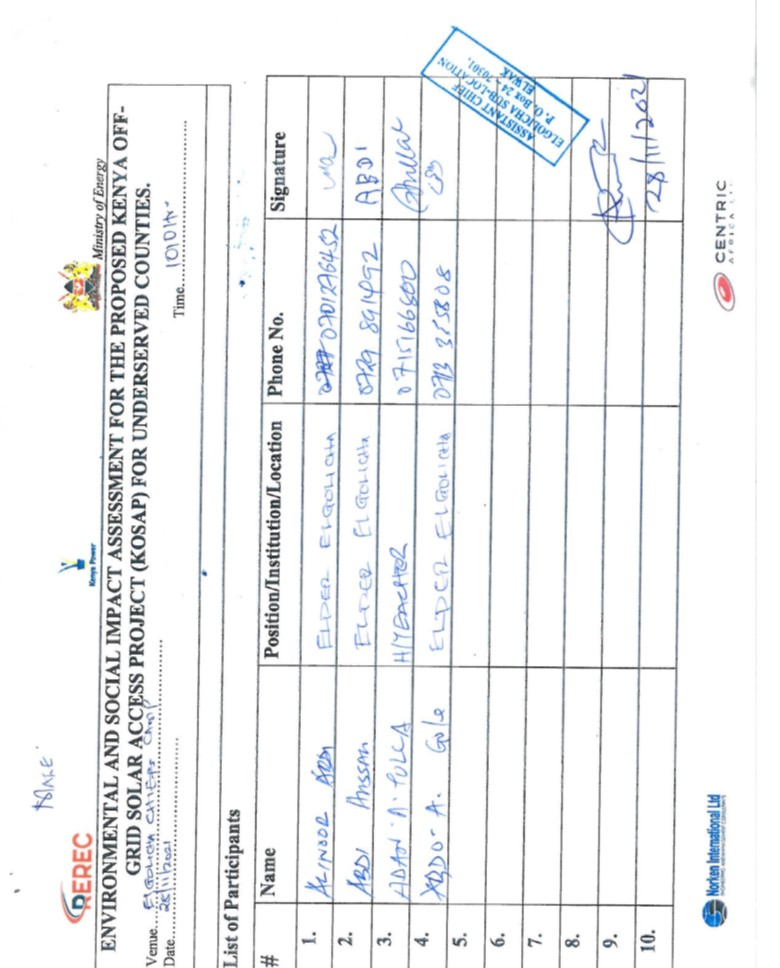 MALE
REREC
Kenya Power
Ministry of Energy
ENVIRONMENTAL AND SOCIAL IMPACT ASSESSMENT FOR THE PROPOSED KENYA OFF-
GRID SOLAR ACCESS PROJECT (KOSAP) FOR UNDERSERVED COUNTIES.
Venue... Elgolicha Chiefs Camp
Date... 28/11/2021 Time... 1010Hr
List of Participants
# Name Position/Institution/Location Phone No. Signature
1. ALINOOR ABDI ELDER ELGOLICHA 0701276452
2. ABDI HASSAN ELDER ELGOLICHA 0729 891492 ABDI
3. ADAN A. H/TEACHER 0715166600
4. ABDO A. Gole ELDER ELGOLICHA 0713 355808
5.
6.
7.
8.
9.
10. 28/11/2021
ASSISTANT CHIEF
ELGOLICHA SUB-LOCATION
P. O. Box 24 - 70301,
ELWAK
Norken International Ltd
CENTRIC
AFRICA LTD